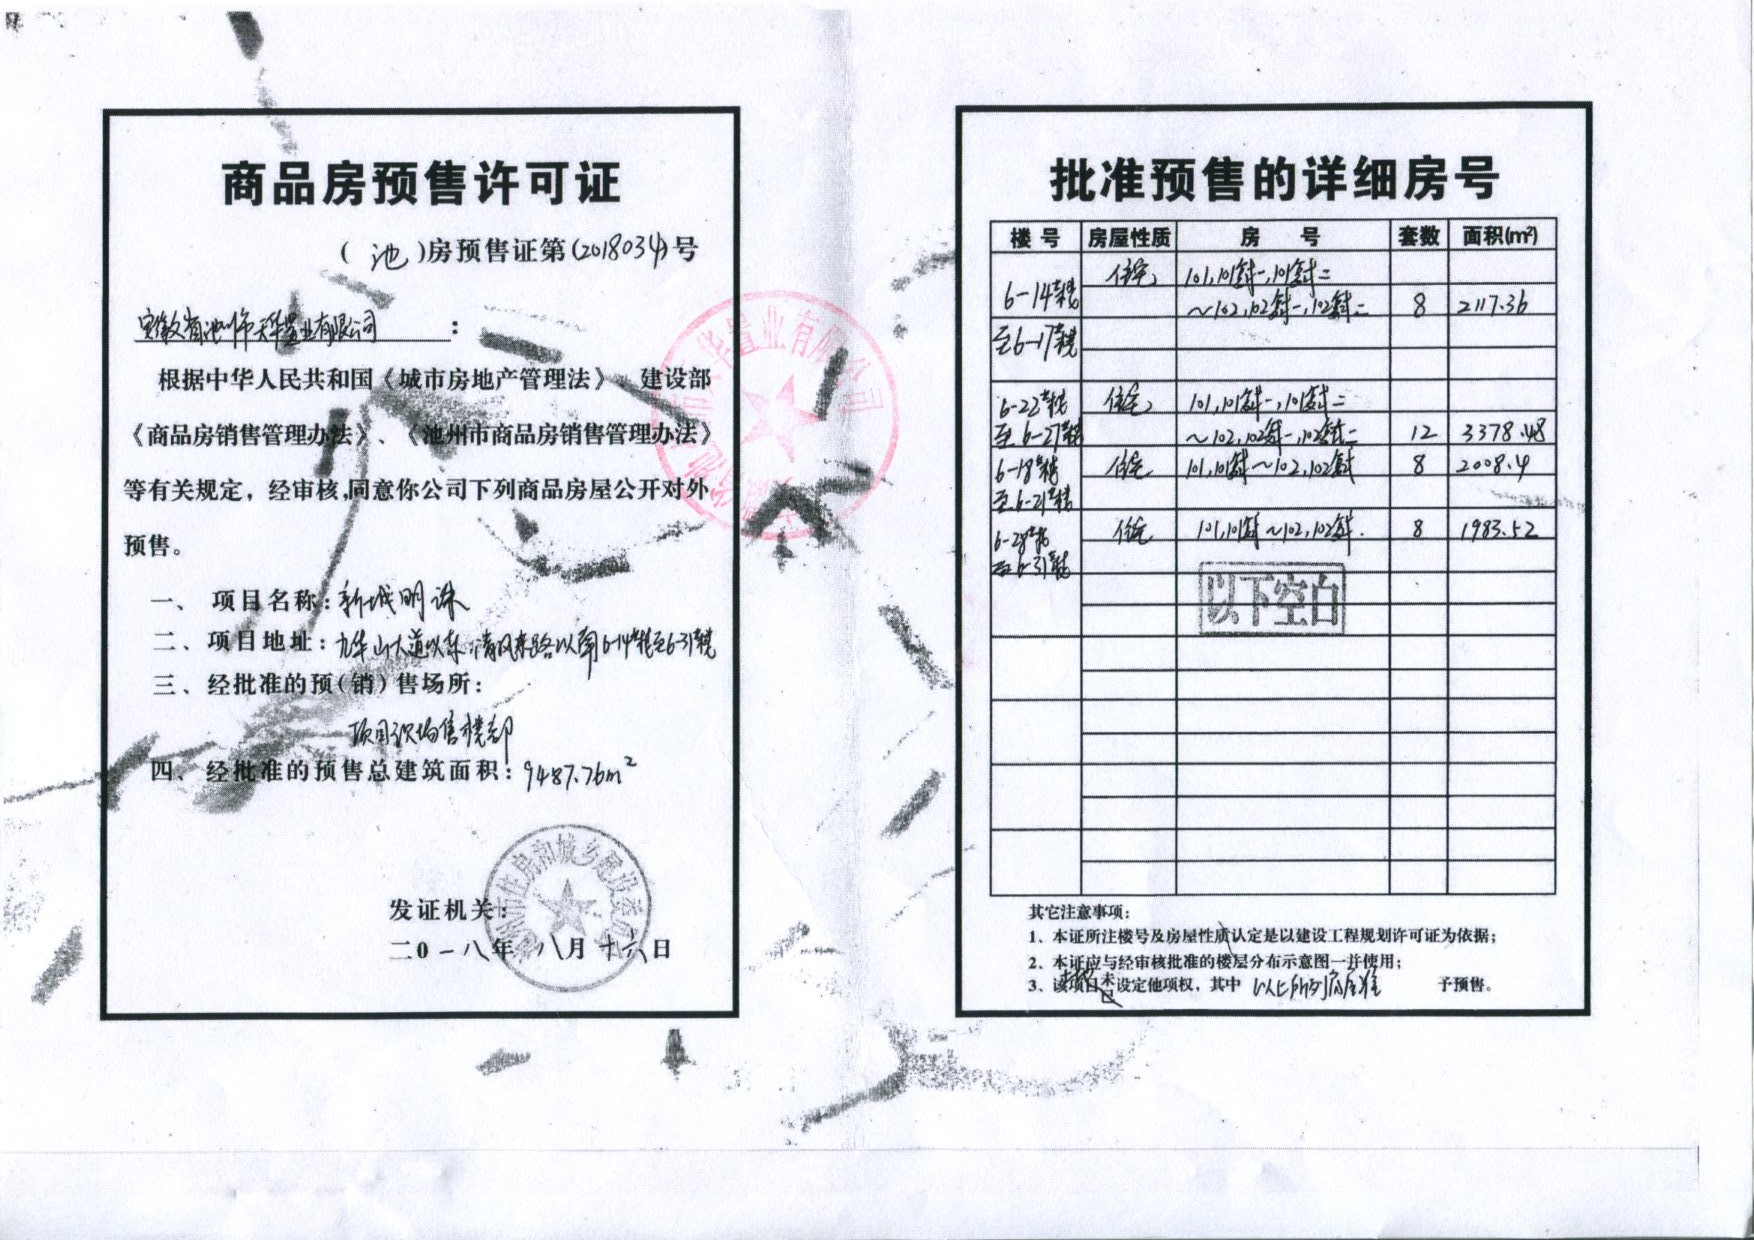 商品房预售许可证
(池)房预售证第(2018034)号
安徽省池州市天华置业有限公司:
根据中华人民共和国《城市房地产管理法》、建设部
《商品房销售管理办法》、《池州市商品房销售管理办法》
等有关规定，经审核，同意你公司下列商品房屋公开对外
预售。
一、项目名称:新城明珠
二、项目地址:九华山大道以东、清风东路以南6-14幢至6-31幢
三、经批准的预(销)售场所:
项目现场售楼部
四、经批准的预售总建筑面积:9487.76m²
池州市住房和城乡建设委员会
发证机关:
二0一八年八月十六日
市天华置业有限公司
批准预售的详细房号
楼号 房屋性质 房号 套数 面积(m²)
6-14幢 住宅 101,101复式一,101复式二
至6-17幢 ~102,102复式一,102复式二 8 2117.36
6-22幢 住宅 101,101复式一,101复式二
至6-27幢 ~102,102复式一,102复式二 12 3378.48
6-18幢 住宅 101,101复式~102,102复式 8 2008.4
至6-21幢
6-28幢 住宅 101,101复式~102,102复式. 8 1983.52
至6-31幢
以下空白
其它注意事项:
1、本证所注楼号及房屋性质认定是以建设工程规划许可证为依据;
2、本证应与经审核批准的楼层分布示意图一并使用;
3、该项目未已设定他项权，其中 以上所列房屋准 予预售。